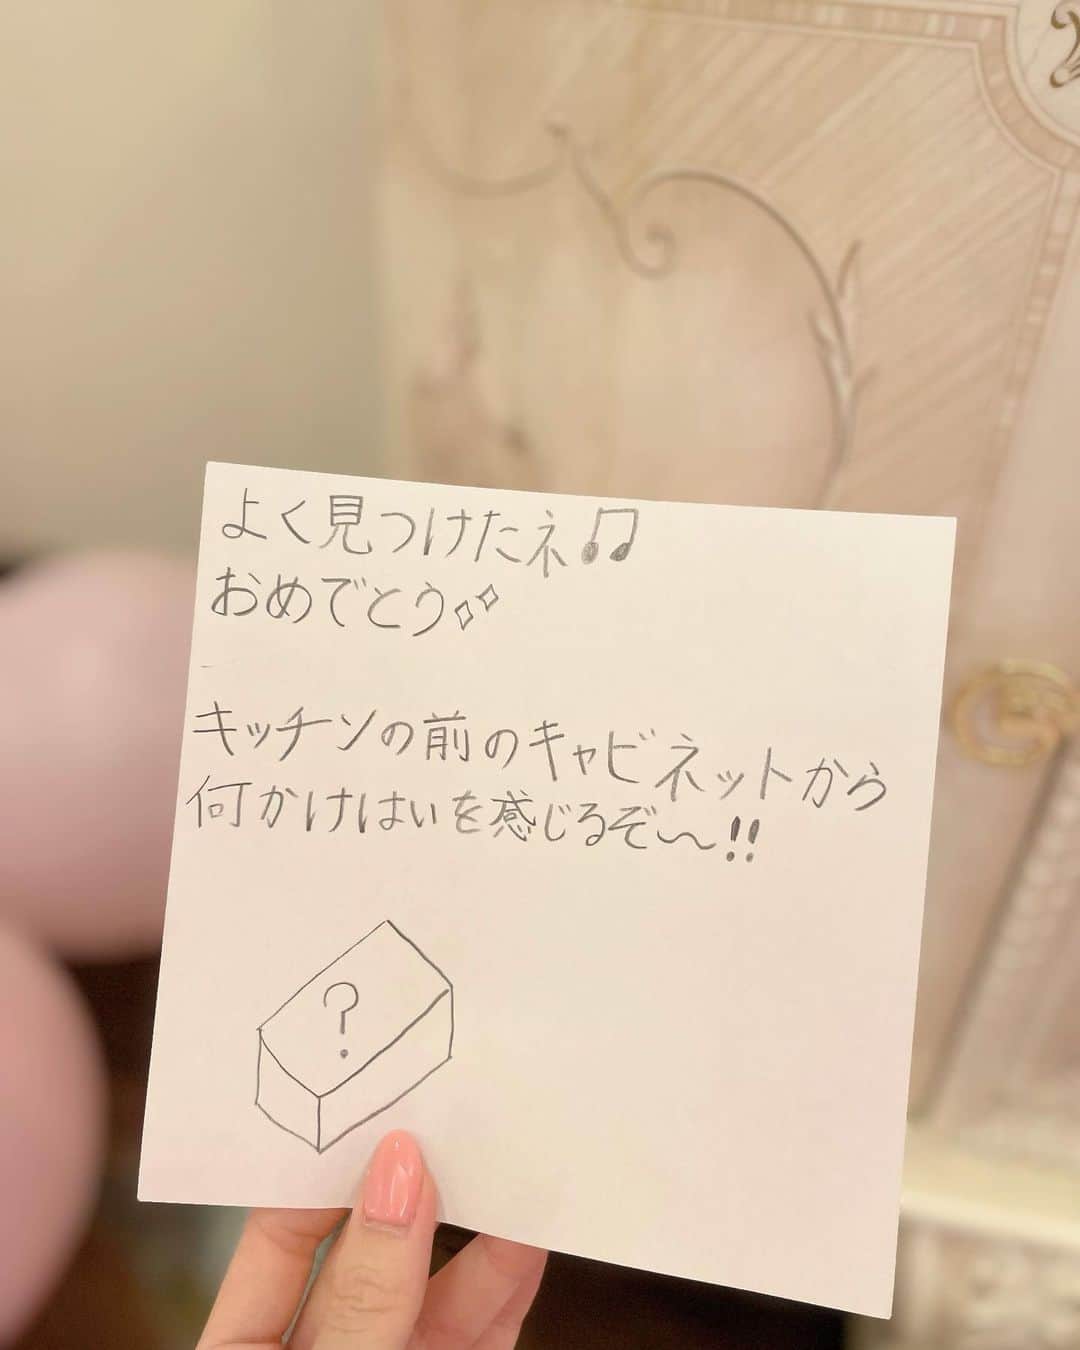 よく見つけたネ♫
おめでとう✨
キッチンの前のキャビネットから
何かけはいを感じるぞ〜!!
?